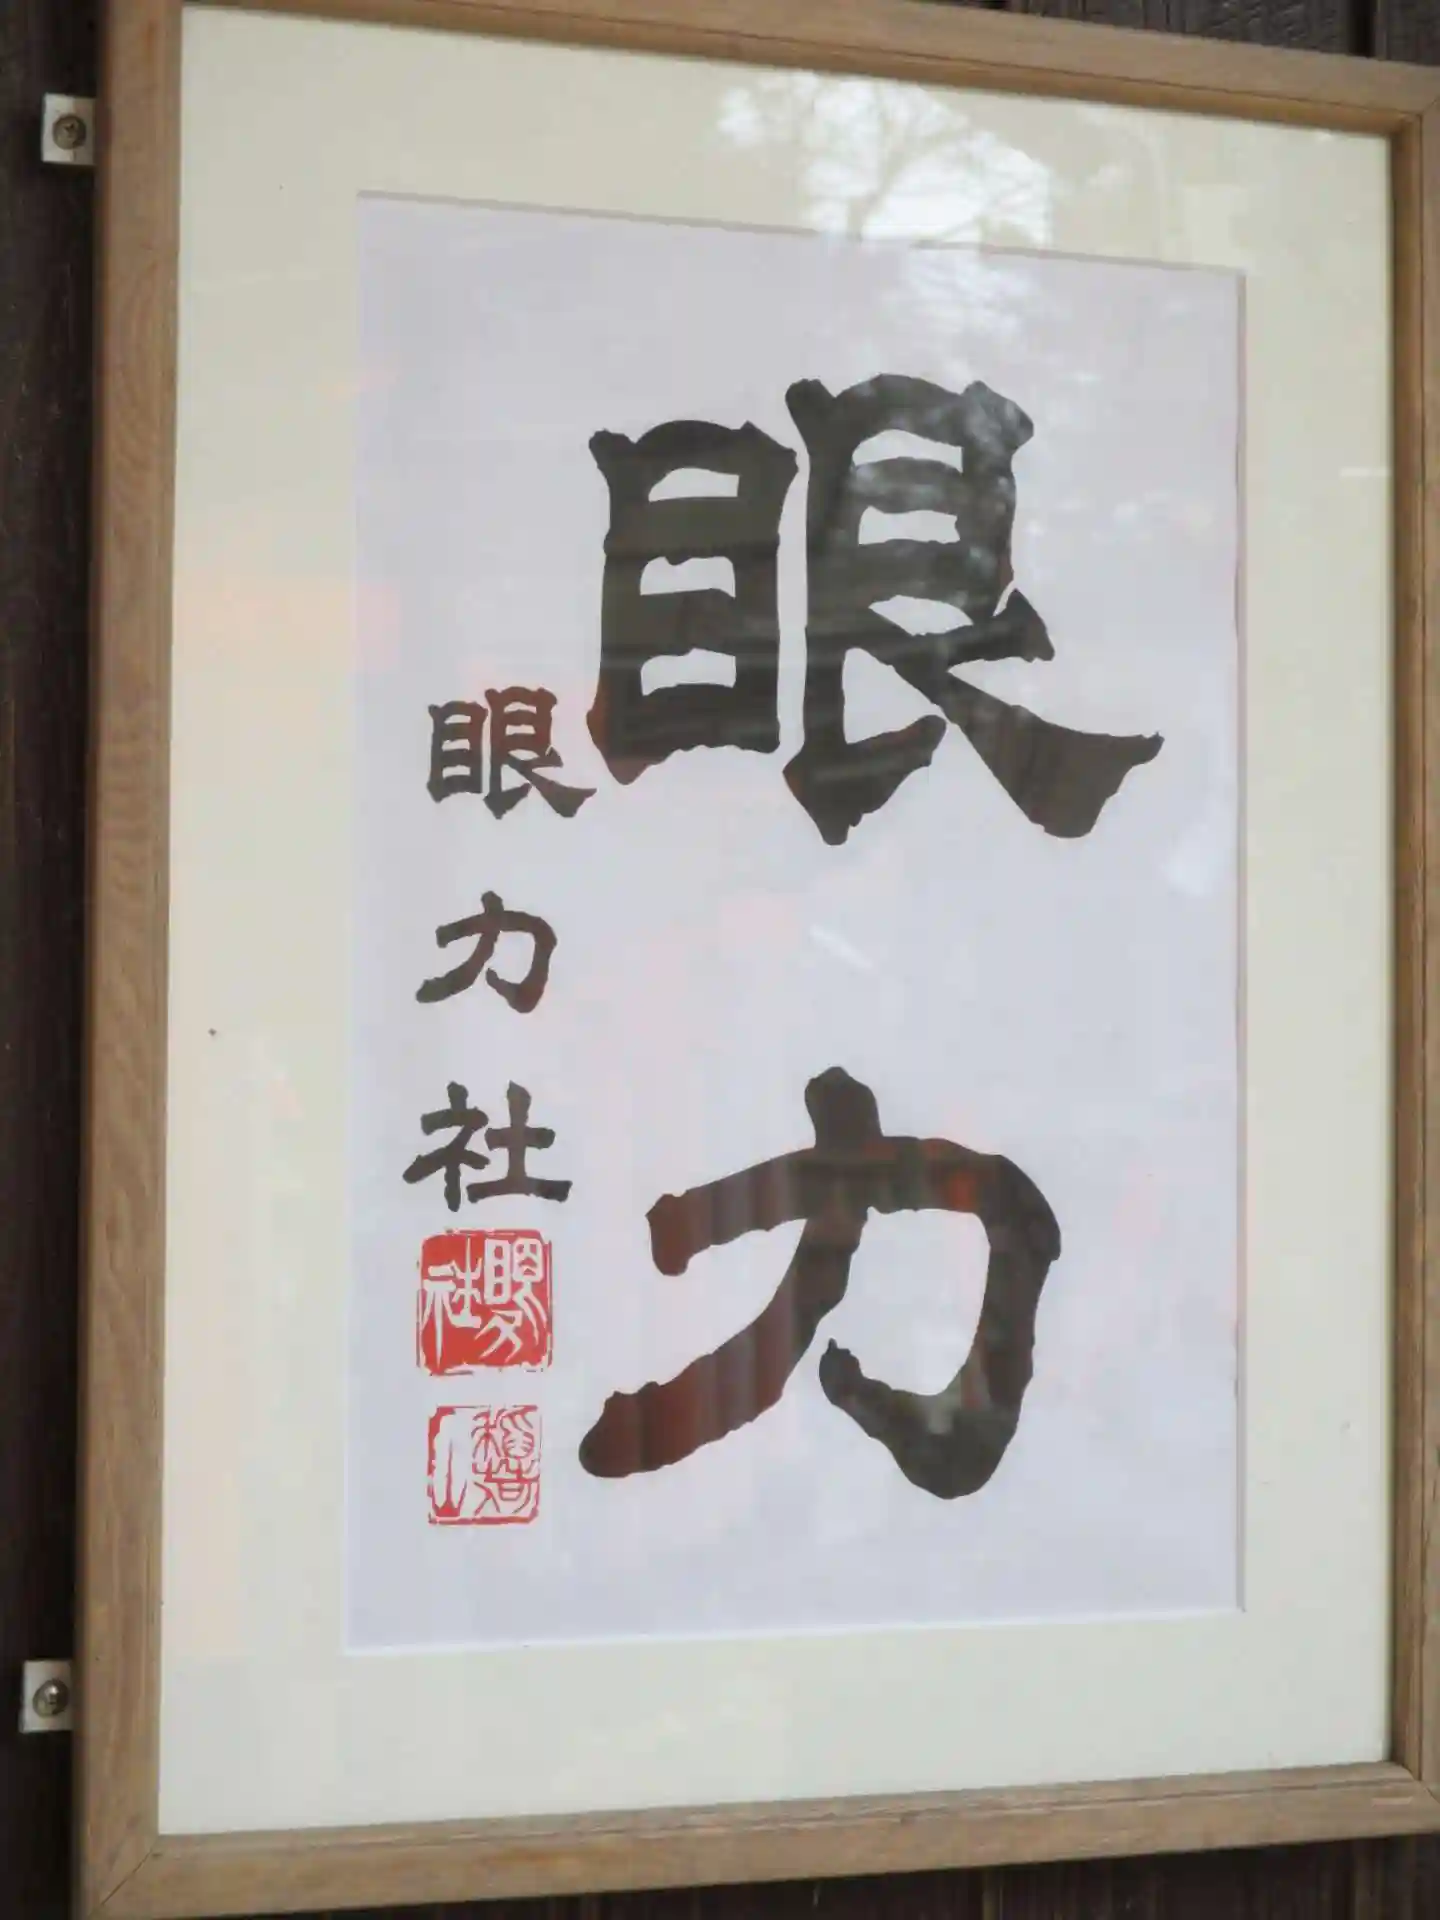 眼力
眼力社
眼力社